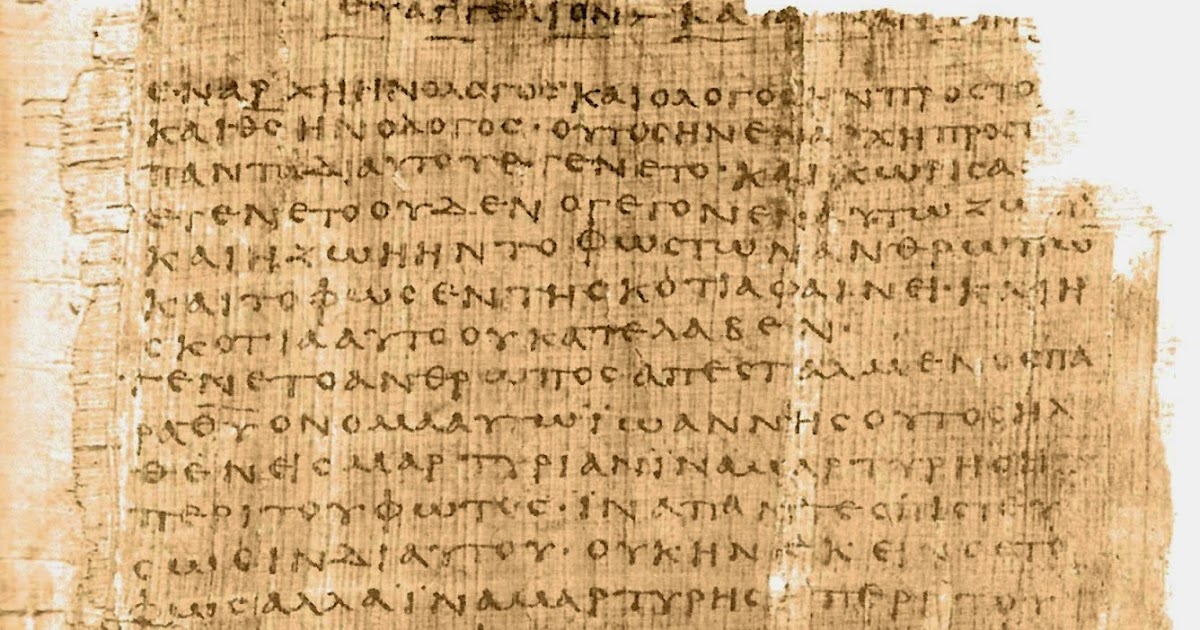 ΕΥΑΓΓΕΛΙΟΝ ΚΑΤΑ
ΕΝΑΡΧΗΗΝΟΛΟΓΟΣ ΚΑΙΟΛΟΓΟΣΗΝΠΡΟΣΤΟ
ΚΑΙ ΘΣ ΗΝΟΛΟΓΟΣ · ΟΥΤΟΣΗΝΕΝΑΡΧΗΠΡΟΣΤ
ΠΑΝΤΑΔΙΑΥΤΟΥΕΓΕΝΕΤΟ · ΚΑΙΧΩΡΙΣΑ
ΕΓΕΝΕΤΟΟΥΔΕΝ ΟΓΕΓΟΝΕΝΑΥΤΩΖΩ
ΚΑΙΗΖΩΗΗΝΤΟΦΩΣΤΩΝΑΝΘΡΩΠΩ
ΚΑΙΤΟΦΩΣΕΝΤΗΣΚΟΤΙΑΦΑΙΝΕΙ · ΚΑΙΗ
ΣΚΟΤΙΑΑΥΤΟΟΥΚΑΤΕΛΑΒΕΝ ·
ΓΕΝΕΤΟΑΝΘΡΩΠΟΣΑΠΕΣΤΑΛΜΕΝΟΣΠΑ
ΡΑΘΥ ΟΝΟΜΑΑΥΤΩΪΩΑΝΝΗΣΟΥΤΟΣΗΛ
ΘΕΝΕΙΣΜΑΡΤΥΡΙΑΝΪΝΑΜΑΡΤΥΡΗΣΗ
ΠΕΡΙΤΟΥΦΩΤΟΣ · ΪΝΑΠΑΝΤΕΣΠΙΣΤΕΥ
ΣΩΣΙΝΔΙΑΥΤΟΥ · ΟΥΚΗΝΕΚΕΙΝΟΣΤΟ
ΦΩΣΑΛΛΑΪΝΑΜΑΡΤΥΡΗΣΗΠΕΡΙΤΟΥ